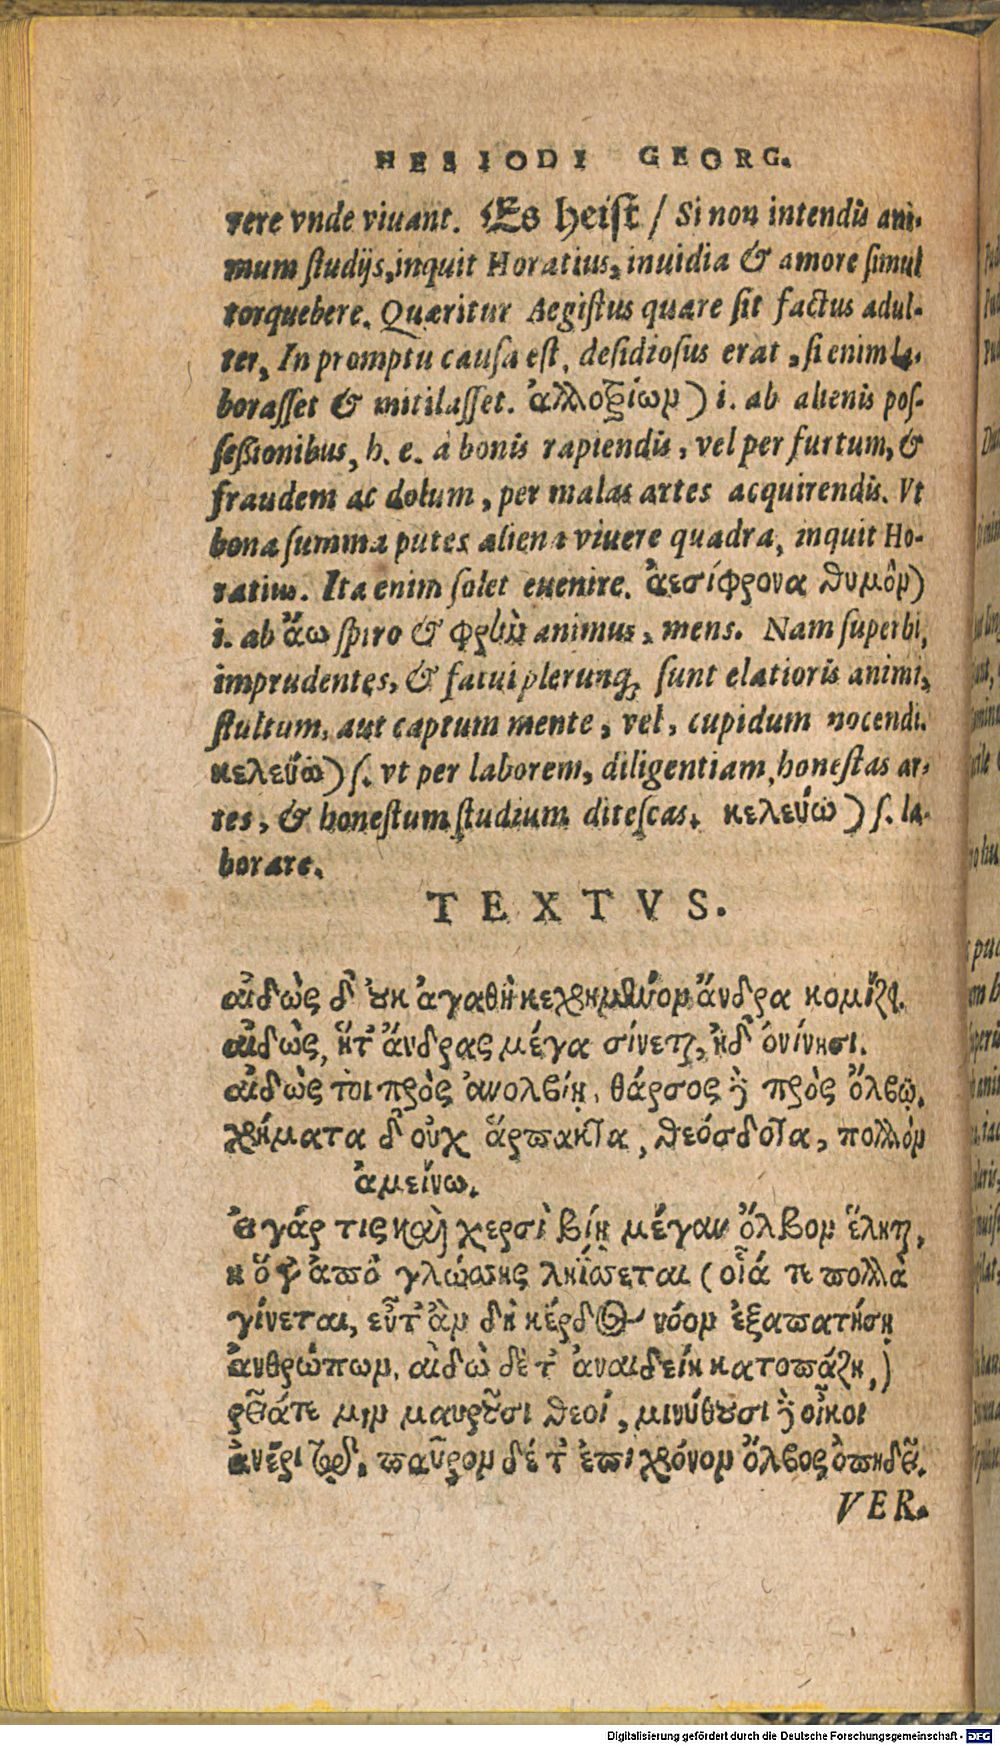 HESIODI GEORG.
rere vnde viuant. Es heist / Si non intendis ani-
mum studijs, inquit Horatius, inuidia & amore simul
torquebere. Quæritur Aegistus quare sit factus adul-
ter, In promptu causa est, desidiosus erat, si enim la-
borasset & mitilasset. ἀλλοτρίωμ) i. ab alienis pos-
seßionibus, h. e. à bonis rapiendis, vel per furtum, &
fraudem ac dolum, per malas artes acquirendis. Vt
bona summa putes aliena viuere quadra, inquit Ho-
ratius. Ita enim solet euenire. ἀεσίφρονα θυμὸμ)
i. ab ἄω spiro & φρὴν animus, mens. Nam superbi,
imprudentes, & fatui plerunq; sunt elatioris animi,
stultum, aut captum mente, vel, cupidum nocendi.
κελεύω) s. vt per laborem, diligentiam, honestas ar-
tes, & honestum studium ditescas. κελεύω) s. la-
borare.
TEXTVS.
αἰδὼς δ' οὐκ ἀγαθὴ κεχρημένομ ἄνδρα κομίζει.
αἰδὼς, ἥτ' ἄνδρας μέγα σίνεται, ἠδ' ὀνίνησι.
αἰδὼς τοι πρὸς ἀνολβίῃ, θάρσος δὲ πρὸς ὄλβῳ.
χρήματα δ' οὐχ ἁρπακτὰ, θεόσδοτα, πολλὸμ
ἀμείνω.
εἰ γάρ τις καὶ χερσὶ βίῃ μέγαν ὄλβομ ἕληται,
ἢ ὅγ' ἀπὸ γλώσσης ληΐσσεται (οἷά τε πολλὰ
γίνεται, εὖτ' ἂμ δὴ κέρδος νόομ ἐξαπατήσῃ
ἀνθρώπωμ, αἰδὼ δέ τ' ἀναιδείη κατοπάζῃ,)
ῥεῖά τε μιμ μαυροῦσι θεοί, μινύθουσι δὲ οἶκοι
ἀνέρι τῷ, παῦρομ δέ τ' ἐπὶ χρόνομ ὄλβος ὀπηδεῖ.
VER-
Digitalisierung gefördert durch die Deutsche Forschungsgemeinschaft - DFG